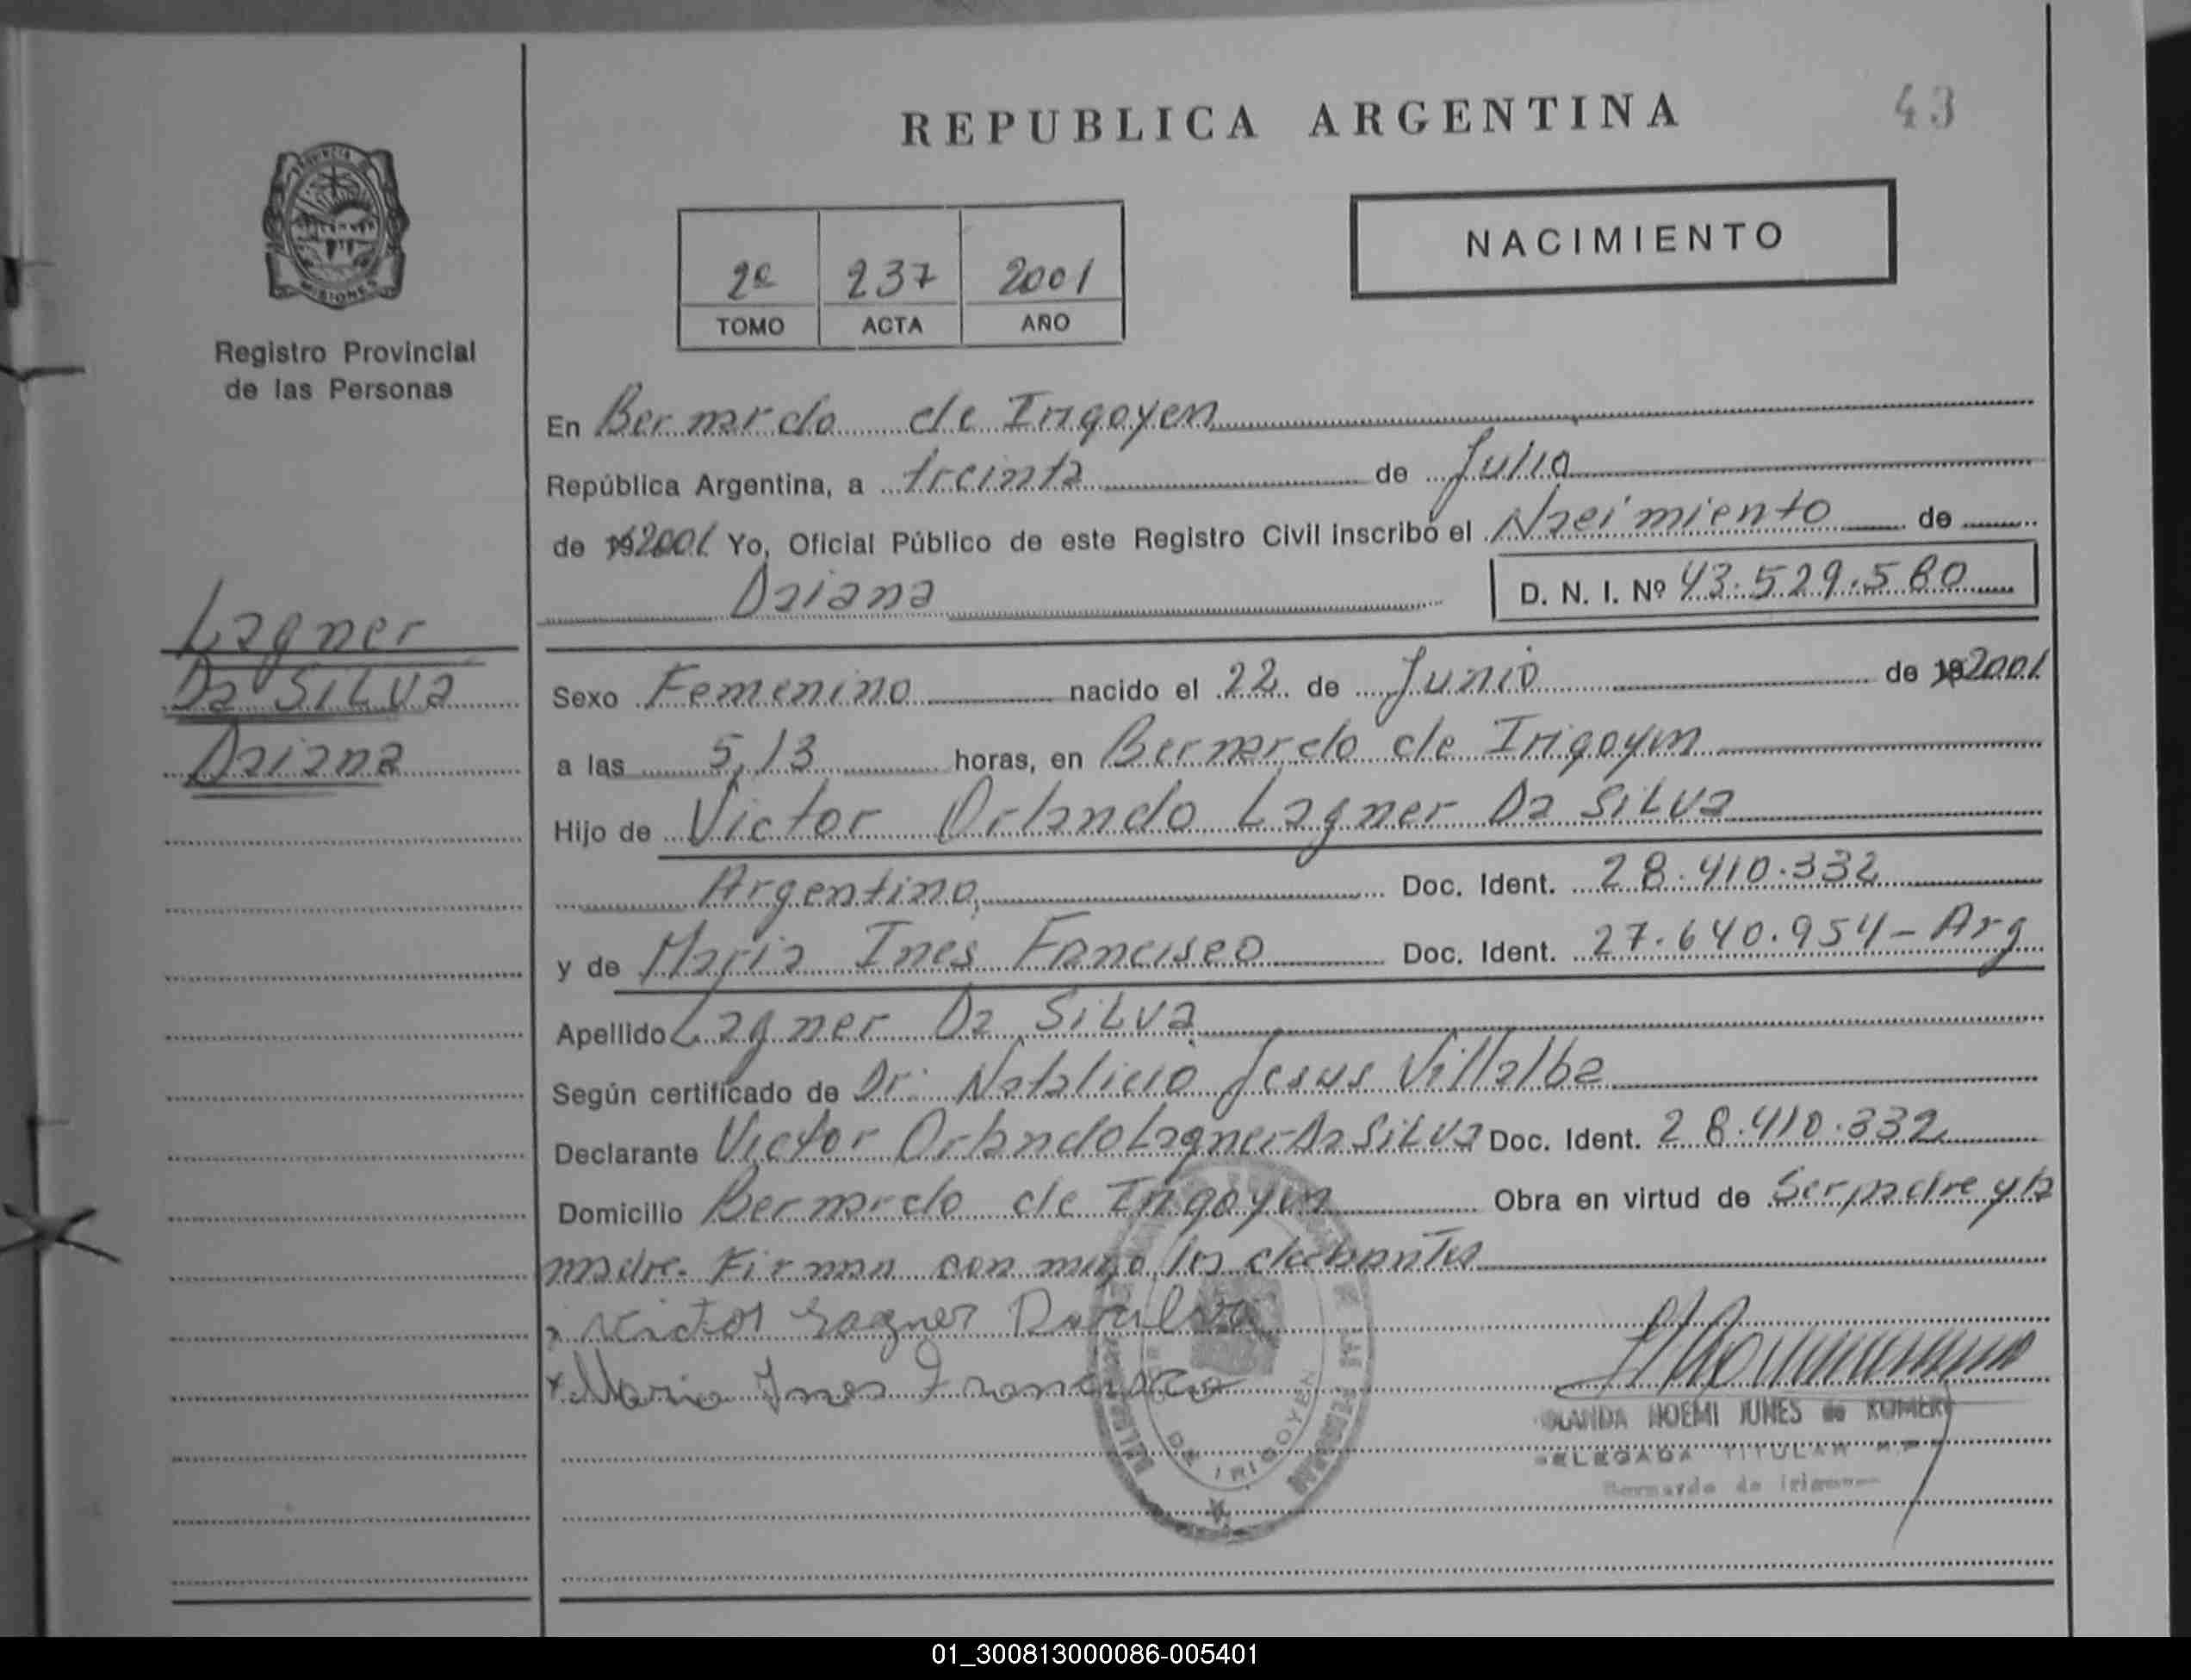 REPUBLICA ARGENTINA
43
PROVINCIA
MISIONES
Registro Provincial
de las Personas
2º 237 2001
TOMO ACTA AÑO
NACIMIENTO
En Bernardo de Irigoyen
República Argentina, a treinta de Julio
de 192001 Yo, Oficial Público de este Registro Civil inscribó el Nacimiento de
Daiana D. N. I. Nº 43.529.580
Lagner
Da SiLVa
Daiana
Sexo Femenino nacido el 22 de Junio de 192001
a las 5,13 horas, en Bernardo de Irigoyen
Hijo de Victor Orlando Lagner Da SiLVa
Argentino, Doc. Ident. 28.410.332
y de Maria Ines Francisco Doc. Ident. 27.640.954 - Arg
Apellido Lagner Da SiLVa
Según certificado de Dr. Natalicio Jesus Villalba
Declarante Victor Orlando Lagner Da SiLVa Doc. Ident. 28.410.332
Domicilio Bernardo de Irigoyen Obra en virtud de Ser padre y la
madre. Firman con migo los declarantes
x Victor Lagner Da silva
x Maria Ines Francisco
DE IRIGOYEN
NOEMI JUNES de ROMERO
DELEGADA TITULAR
Bernardo de Irigoyen
01_300813000086-005401